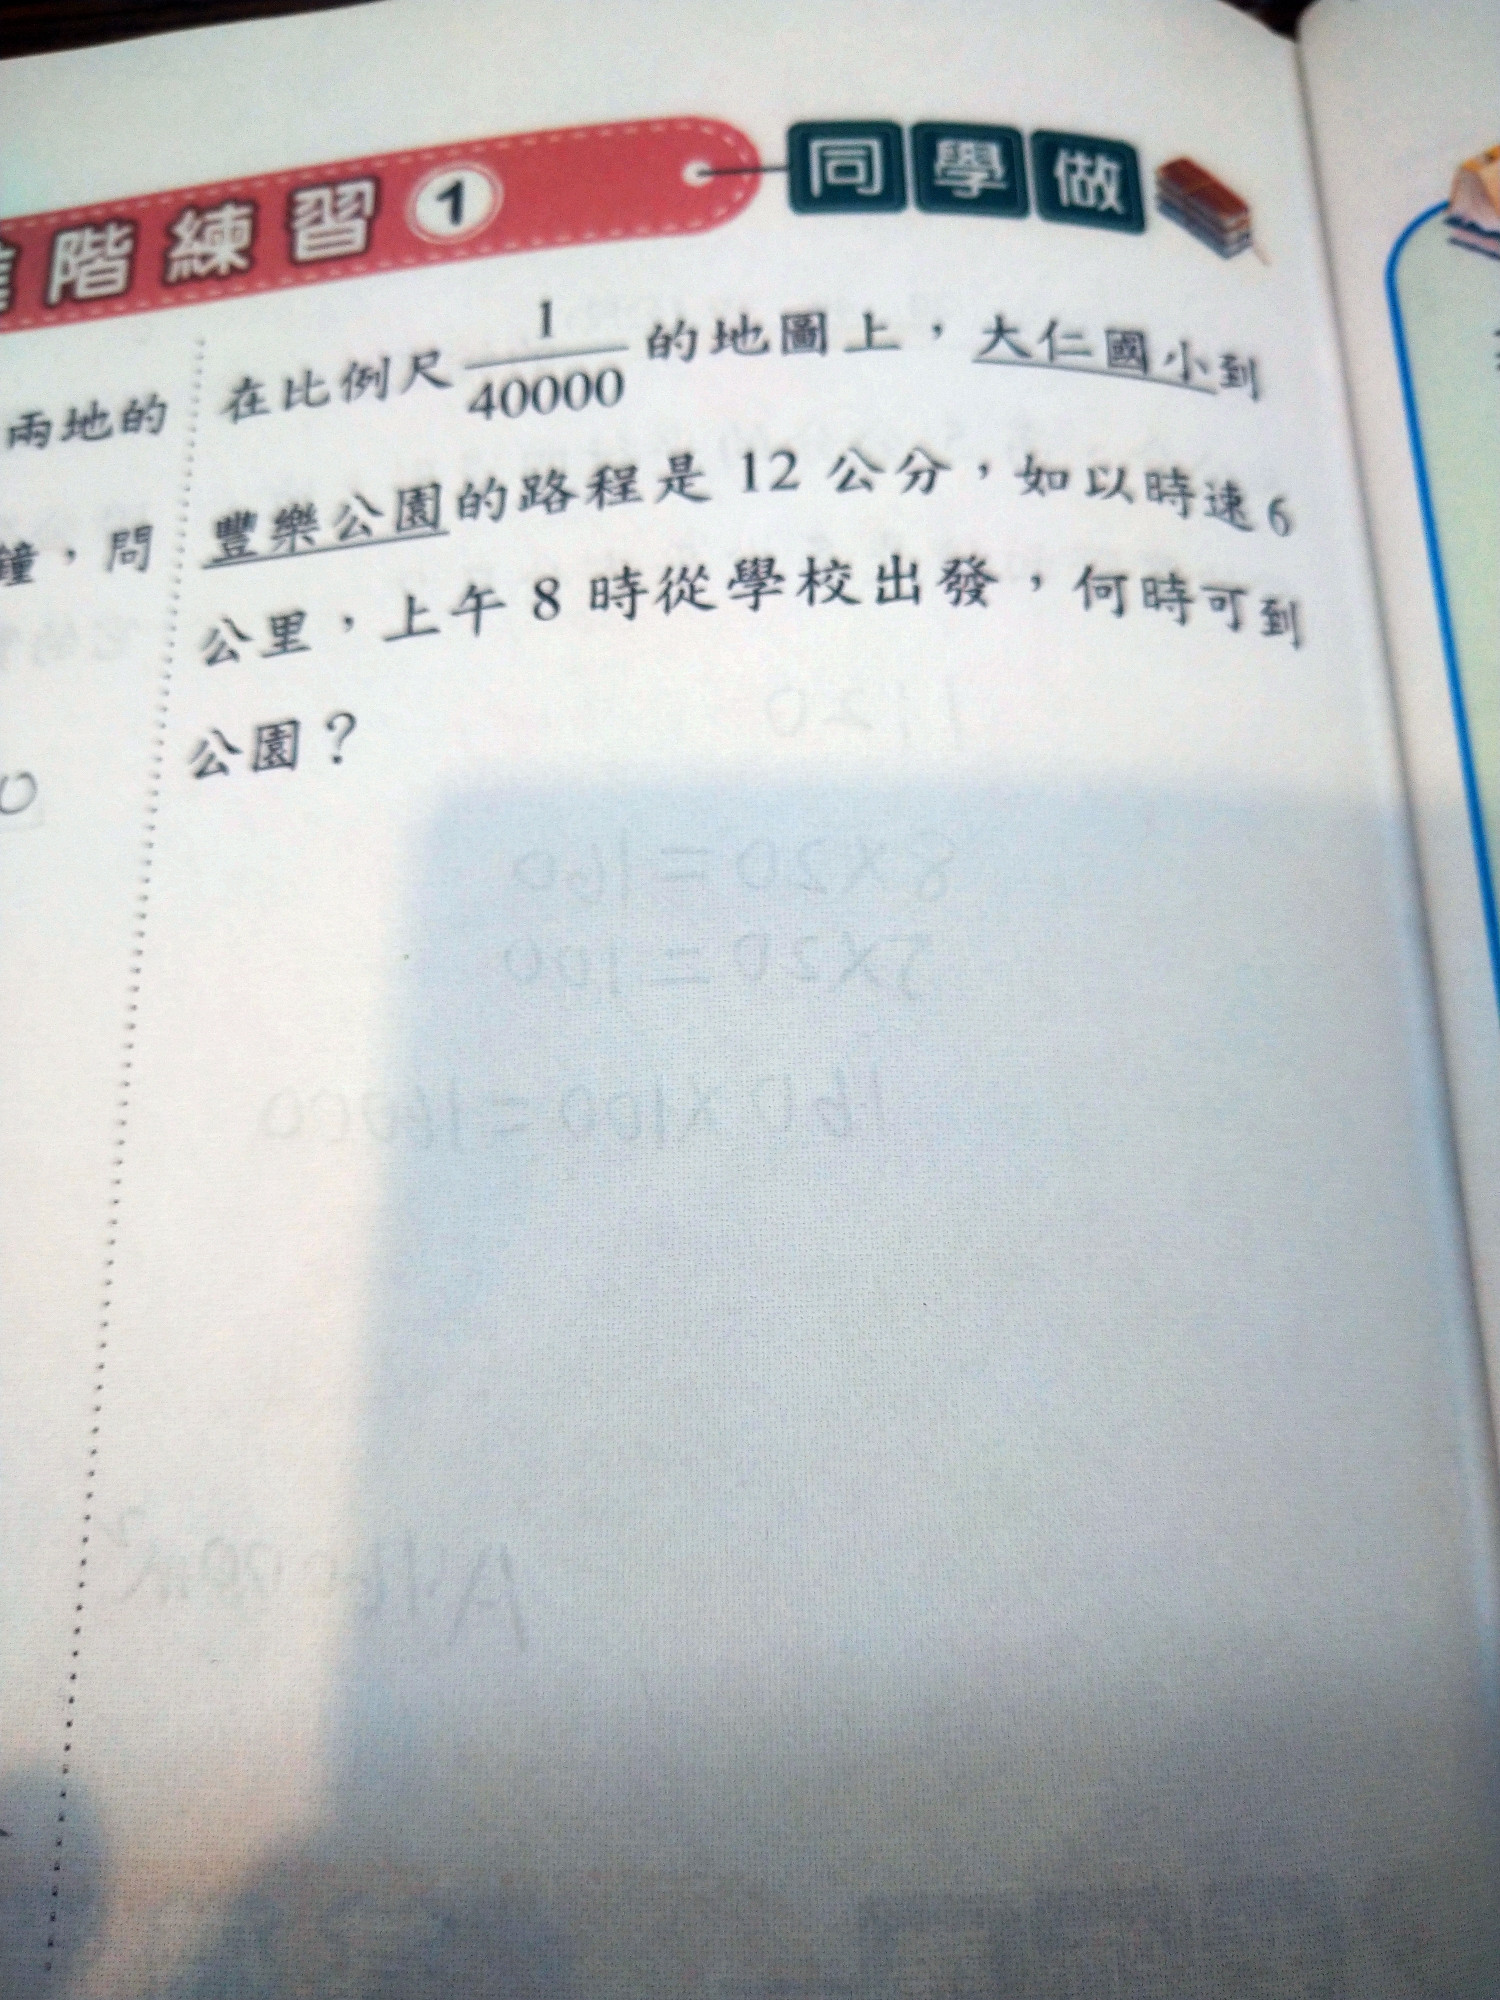 階練習 1 同學做
兩地的
鐘，問
在比例尺 1/40000 的地圖上，大仁國小到
豐樂公園的路程是 12 公分，如以時速 6
公里，上午 8 時從學校出發，何時可到
公園？
1120
8×20=160
5×20=100
160×100=16000